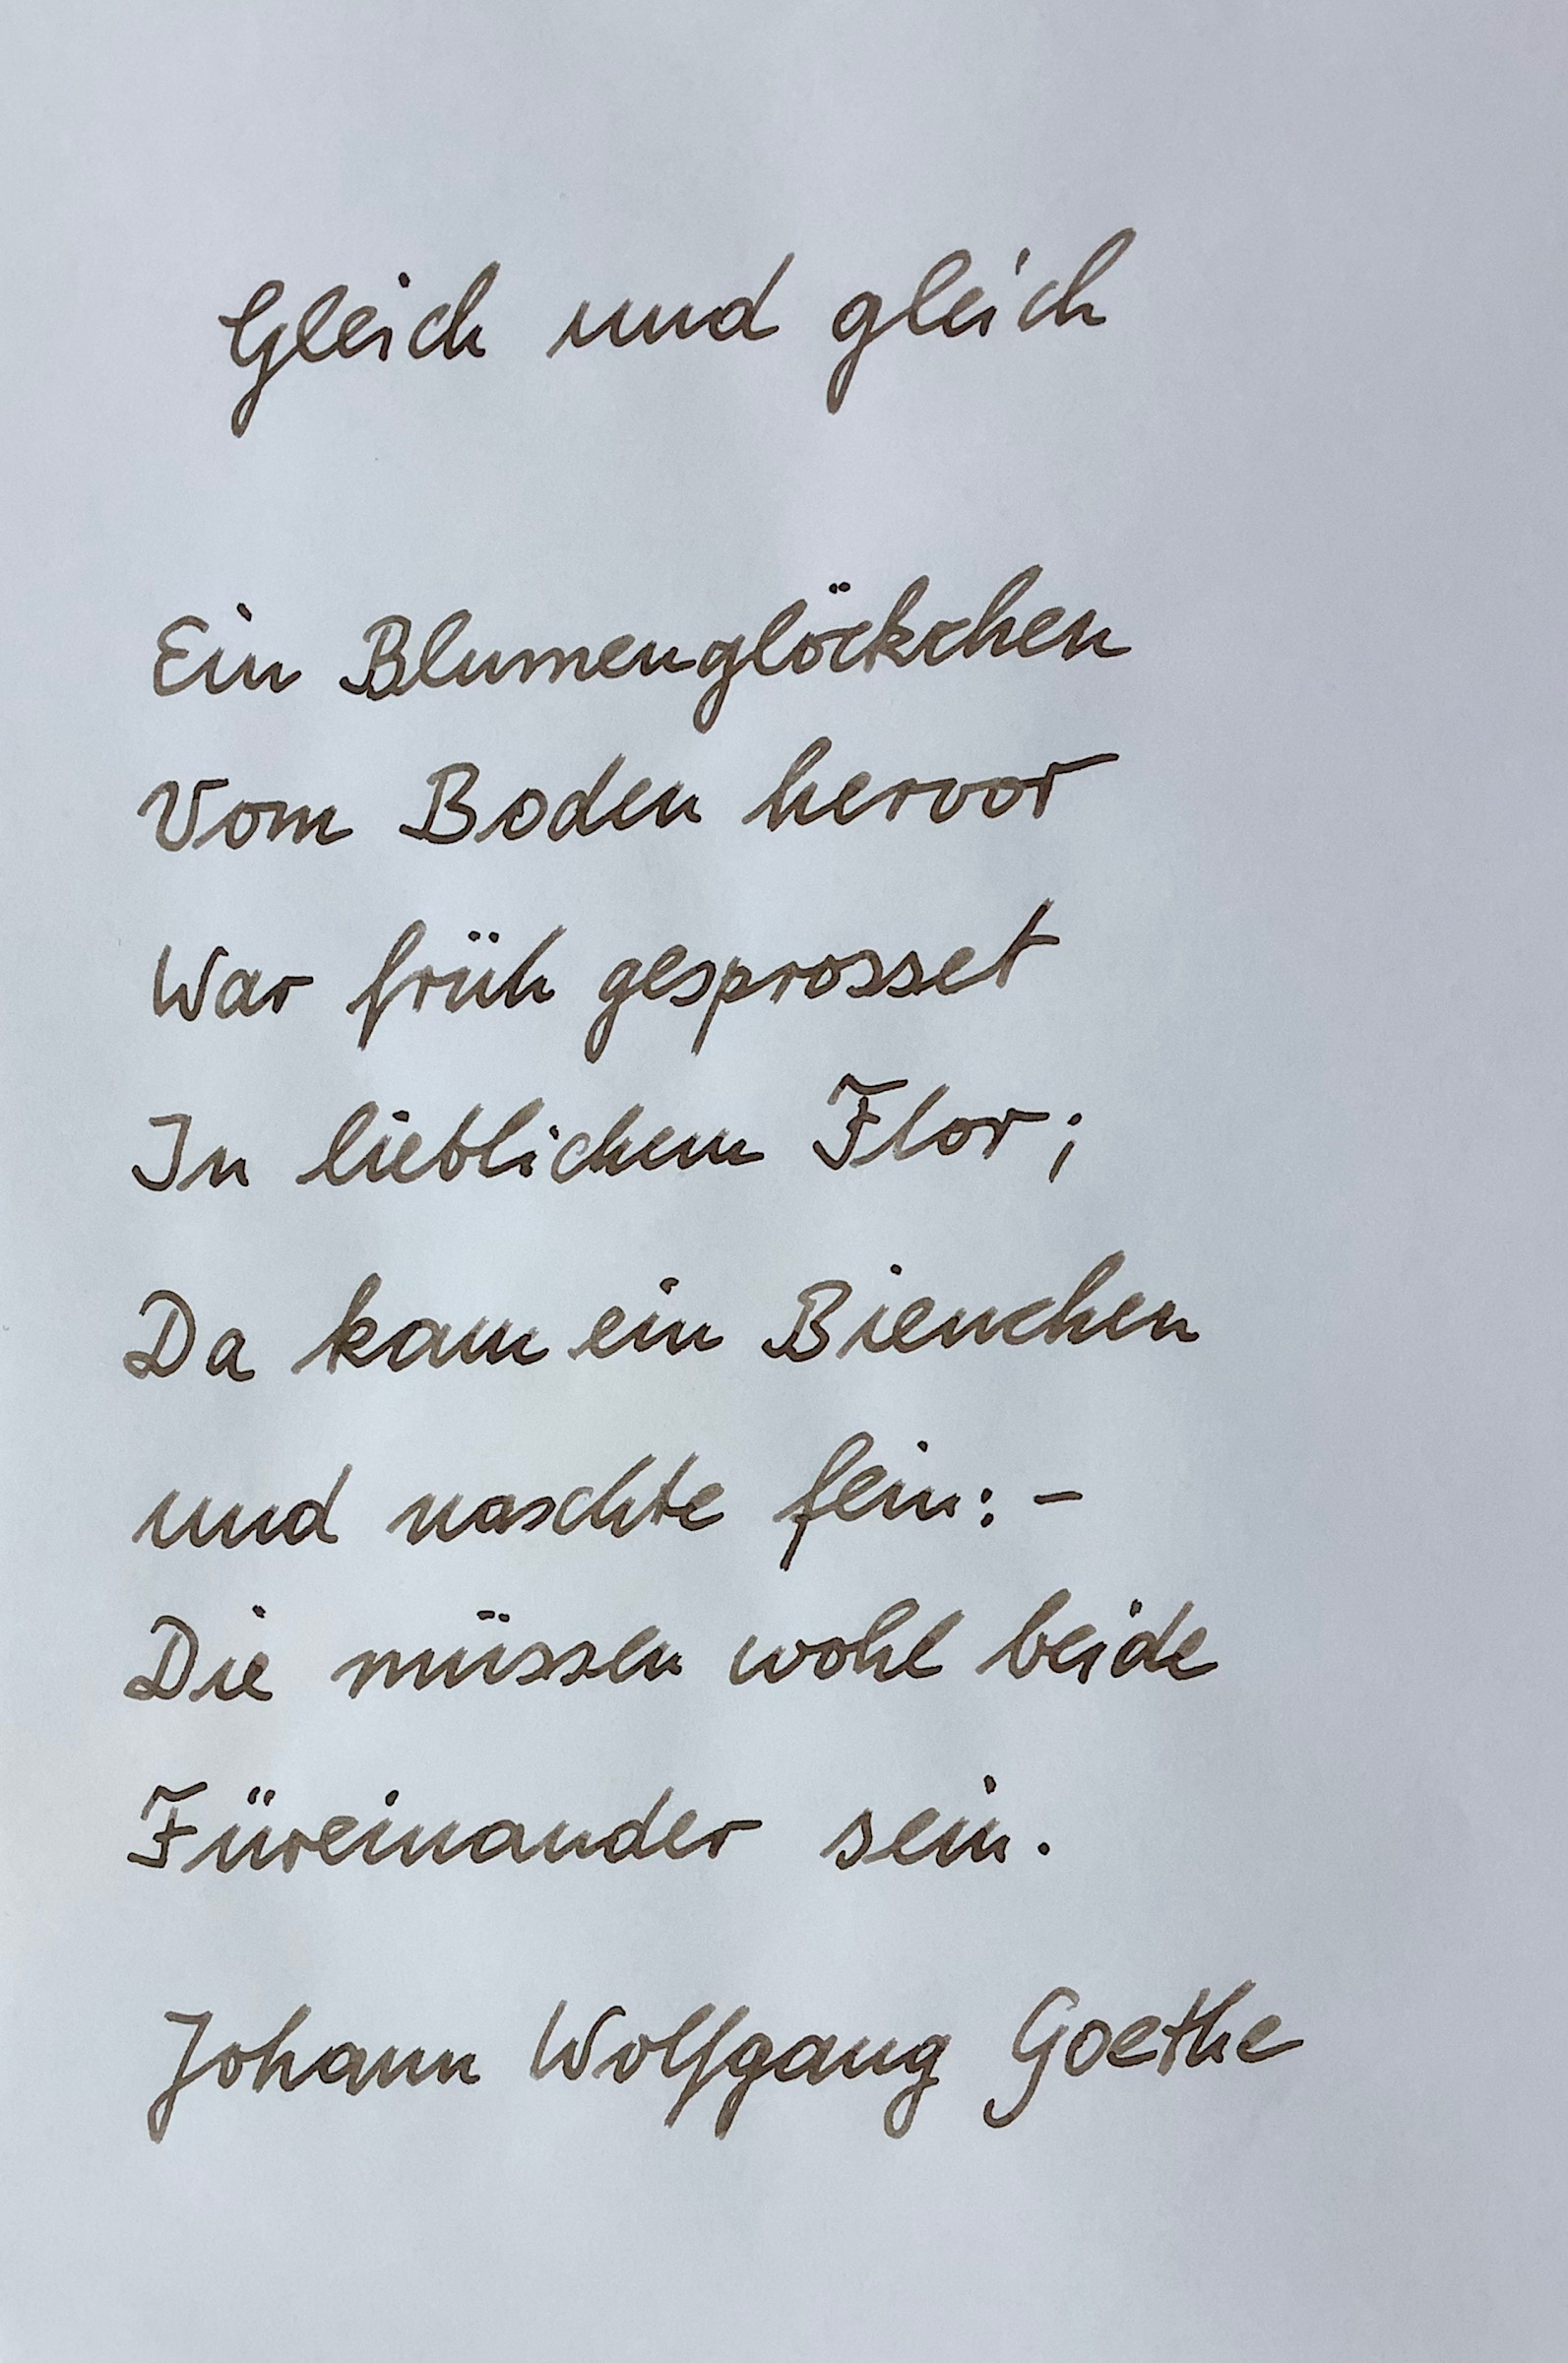 Gleich und gleich
Ein Blumenglöckchen
Vom Boden hervor
War früh gesprosset
In lieblichem Flor;
Da kam ein Bienchen
und naschte fein: –
Die müssen wohl beide
Füreinander sein.
Johann Wolfgang Goethe